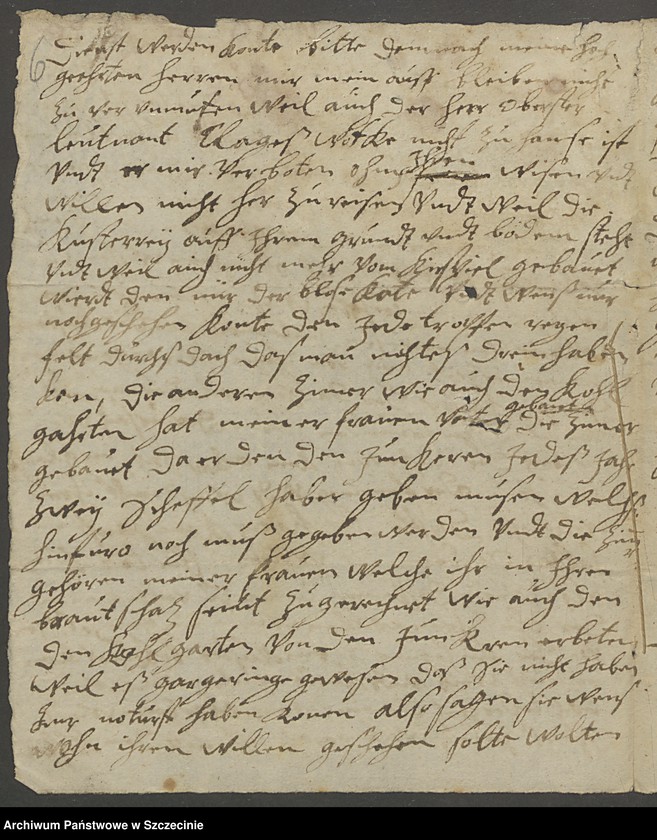 6
Dienst werden konte bitte demnach meine hoch
geehrten herren mir mein auff bleiben nicht
zu ver unmuten weil auch der herr Oberster
leutnant Clages Wotke nicht zu hause ist
undt er mir verboten ohne Ihren wisen undt
willen nicht her zu reisen undt weil die
Kusterreÿ auff Ihrem grundt undt bodem steht
undt weil auch nicht mehr vom Kirspiel gebauet
wierdt den nur der blose Kate undt wens nur
noch geschehen konte den Jede troffen regen
felt durchs dach das man nichtes drein haben
kan, die anderen Zimer wie auch den Kohl
gahrten hat meiner frauen vater die Zimer
gebauet
gebauet da er den den Junkeren Jedes Jahr
zweÿ scheffel haber geben musen welchs
hinfuro noch mus gegeben werden undt die Zim
gehören meiner frauen welche ihr in Ihren
braut schatz seint zugerechnet wie auch den
den Kohl garten von den Junkren erbeten
weil es gar geringe gewesen das sie nicht haben
zur noturft haben konen also sagen sie wens
ohn ihren willen geschehen solte wolten
Archiwum Państwowe w Szczecinie